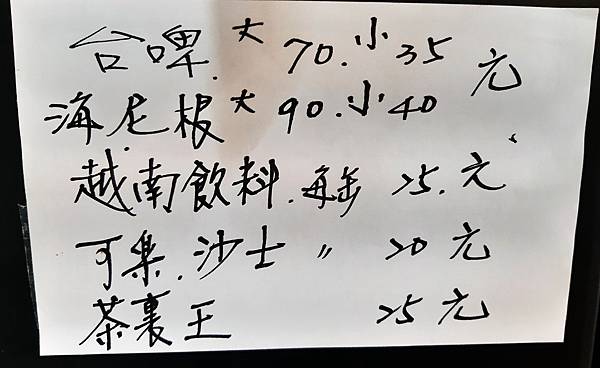 台啤.大 70.小 35 元
海尼根大 90.小 40
越南飲料.每缶 25.元
可樂.沙士 〃 20 元
茶裏王 25 元